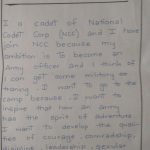 I a cadet of National
Cadet Corp (NCC) and I have
join NCC because my
ambition is to become an
Army officer and I think if
I can get some military or
training. I want to go to the
camp because I want to
inspire that how an army
has the spirit of adventure
I want to develop the quali-
ties of courage, comradeship,
discipline, leadership, secular